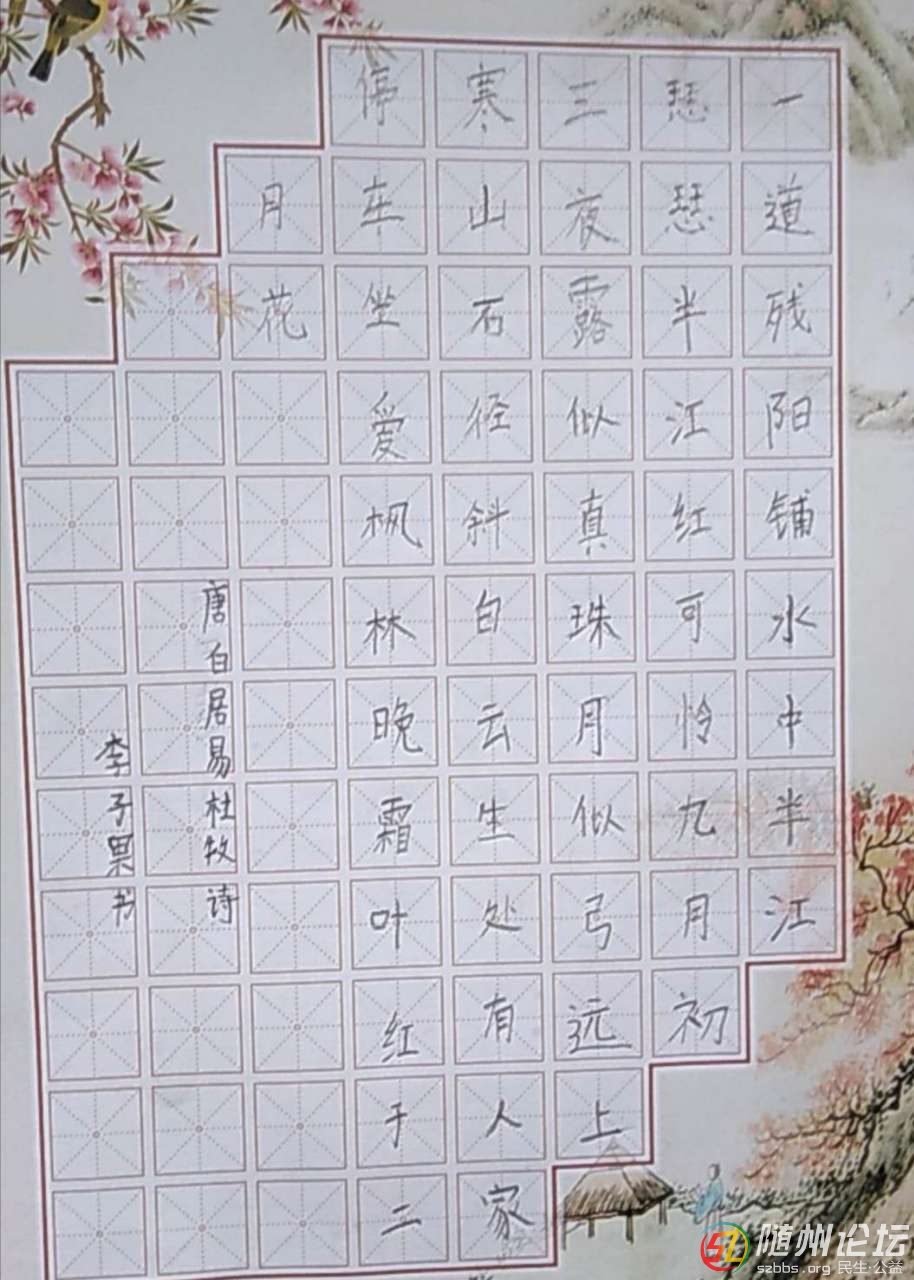 一道残阳铺水中半江
瑟瑟半江红可怜九月初
三夜露似真珠月似弓远上
寒山石径斜白云生处有人家
停车坐爱枫林晚霜叶红于二
月花
唐白居易杜牧诗
李子果书
随州论坛
szbbs.org 民生·公益